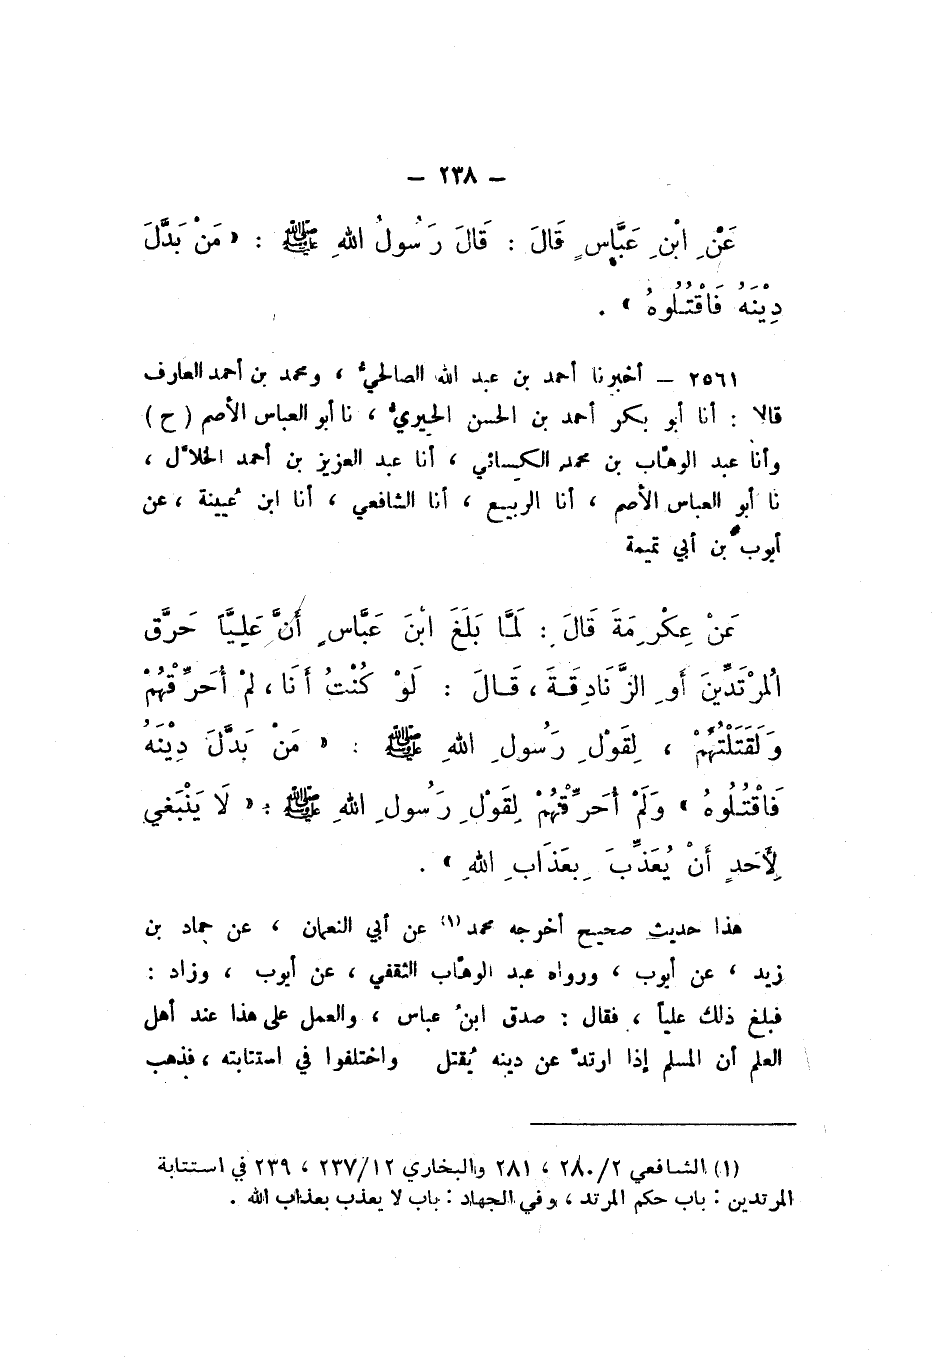 – ٢٣٨ –
عَنْ ابْنِ عَبَّاسٍ قَالَ : قَالَ رَسُولُ اللهِ ﷺ : « مَنْ بَدَّلَ
دِيْنَهُ فَاقْتُلُوهُ » .
٢٥٦١ – أخبرنا أحمد بن عبد الله الصالحيُّ ، ومحمد بن أحمد العارف
قالا : أنا أبو بكر أحمد بن الحسن الحيريُّ ، نا أبو العباس الأصم ( ح )
وأنا عبد الوهّاب بن محمد الكسائي ، أنا عبد العزيز بن أحمد الخلاّل ،
نا أبو العباس الأصم ، أنا الربيع ، أنا الشافعي ، أنا ابن عُيينة ، عن
أيوب بن أبي تميمة
عَنْ عِكْرِمَةَ قَالَ : لَمَّا بَلَغَ ابْنَ عَبَّاسٍ أَنَّ عَلِيَّاً حَرَّقَ
المُرْتَدِّينَ أَوِ الزَّنَادِقَةَ ، قَالَ : لَوْ كُنْتُ أَنَا ، لَمْ أُحَرِّقْهُمْ
وَلَقَتَلْتُهُمْ ، لِقَوْلِ رَسُولِ اللهِ ﷺ : « مَنْ بَدَّلَ دِيْنَهُ
فَاقْتُلُوهُ » وَلَمْ أُحَرِّقْهُمْ لِقَوْلِ رَسُولِ اللهِ ﷺ : « لَا يَنْبَغِي
لِأَحَدٍ أَنْ يُعَذِّبَ بِعَذَابِ اللهِ » .
هذا حديث صحيح أخرجه محمد (١) عن أبي النعمان ، عن حماد بن
زيد ، عن أيوب ، ورواه عبد الوهّاب الثقفي ، عن أيوب ، وزاد :
فبلغ ذلك علياً ، فقال : صدق ابنُ عباس ، والعمل على هذا عند أهل
العلم أن المسلم إذا ارتدّ عن دينه يُقتل واختلفوا في استتابته ، فذهب
(١) الشافعي ٢/٢٨٠ ، ٢٨١ والبخاري ٢٣٧/١٢ ، ٢٣٩ في استتابة
المرتدين : باب حكم المرتد ، وفي الجهاد : باب لا يعذب بعذاب الله .